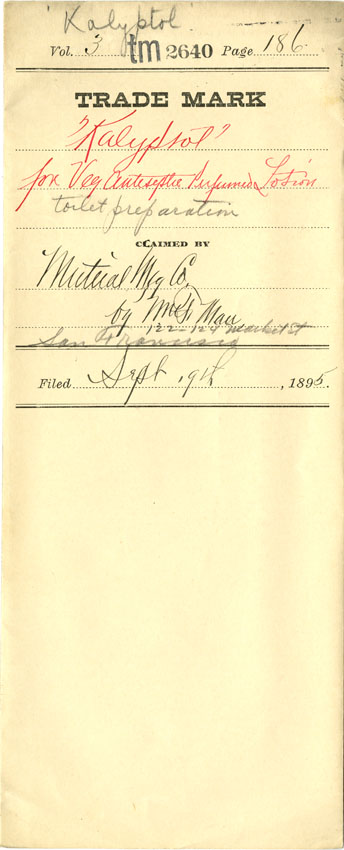 'Kalyptol'
Vol. 3 tm 2640 Page 186
TRADE MARK
"Kalyptol"
for Veg Antiseptic Perfumed Lotion
toilet preparation
CLAIMED BY
Mutual Mfg Co.
by Wm F Wau
122-124 Market St
San Francisco
Filed Sept 9th, 1895.